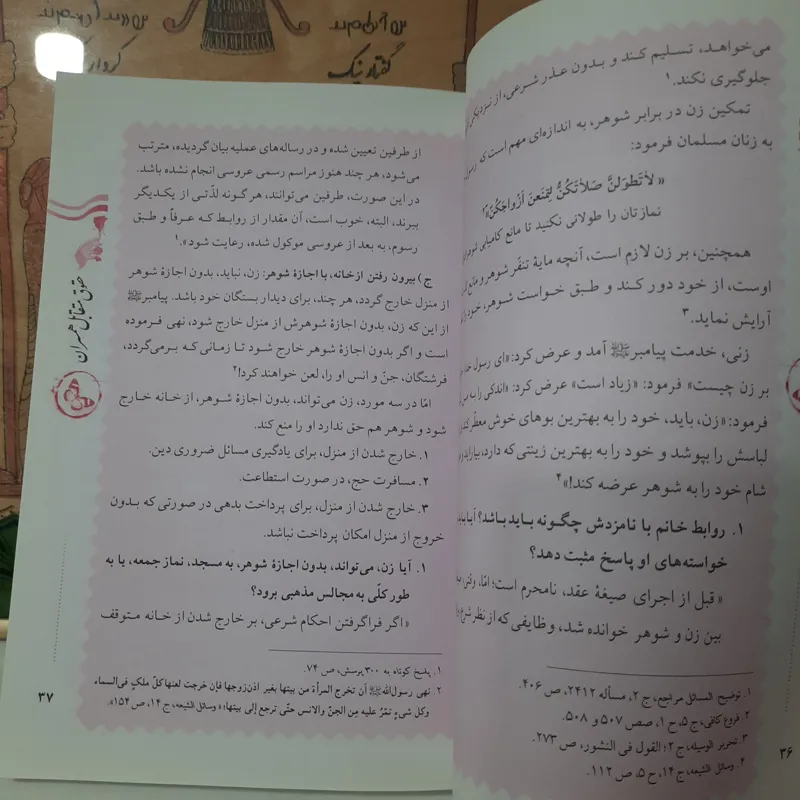 گفتار نیک
می‌خواهد، تسلیم کند و بدون عذر شرعی، از نزدیکی
جلوگیری نکند.۱
تمکین زن در برابر شوهر، به اندازه‌ای مهم است که رسول
به زنان مسلمان فرمود:
« لاٰتَطوَلنَّ صَلاٰتَکُنُّ لِتَمنَعنَ اَزوٰاجَکُنَّ»۲
نمازتان را طولانی نکنید تا مانع کامیابی
همچنین، بر زن لازم است، آنچه مایهٔ تنفّر شوهر و مانع
اوست، از خود دور کند و طبق خواست شوهر، خود را
آرایش نماید.۳
زنی، خدمت پیامبرﷺ آمد و عرض کرد: «ای رسول خدا
بر زن چیست» فرمود: «زیاد است» عرض کرد: «اندکی را به
فرمود: «زن، باید، خود را به بهترین بوهای خوش معطّر کند
لباسش را بپوشد و خود را به بهترین زینتی که دارد، بیاراید و
شام خود را به شوهر عرضه کند!»۴
۱. روابط خانم با نامزدش چگونه باید باشد؟ آیا باید
خواسته‌های او پاسخ مثبت دهد؟
« قبل از اجرای صیغهٔ عقد، نامحرم است؛ امّا، وقتی
بین زن و شوهر خوانده شد، وظایفی که از نظر شرع
۱. توضیح المسائل مراجع، ج ۲، مسأله ۲۴۱۲، ص ۴۰۶.
۲. فروع کافی، ج ۵، ح ۱، صص ۵۰۷ و ۵۰۸.
۳. تحریر الوسیله، ج ۲؛ القول فی النشور، ص ۲۷۳.
۴. وسائل الشیعه، ج ۱۴، ح ۵، ص ۱۱۲.
۳۶
از طرفین تعیین شده و در رساله‌های عملیه بیان گردیده، مترتب
می‌شود، هر چند هنوز مراسم رسمی عروسی انجام نشده باشد.
در این صورت، طرفین می‌توانند، هر گونه لذّتی از یکدیگر
ببرند، البته، خوب است، آن مقدار از روابط که عرفاً و طبق
رسوم، به بعد از عروسی موکول شده، رعایت شود».۱
ج ) بیرون رفتن از خانه، با اجازهٔ شوهر: زن، نباید، بدون اجازهٔ شوهر
از منزل خارج گردد، هر چند، برای دیدار بستگان خود باشد. پیامبرﷺ
از این که زن، بدون اجازهٔ شوهرش از منزل خارج شود، نهی فرموده
است و اگر بدون اجازهٔ شوهر خارج شود تا زمانی که برمی‌گردد،
فرشتگان، جنّ و انس او را، لعن خواهند کرد!۲
امّا در سه مورد، زن می‌تواند، بدون اجازهٔ شوهر، از خانه خارج
شود و شوهر هم حق ندارد او را منع کند.
۱. خارج شدن از منزل، برای یادگیری مسائل ضروری دین.
۲. مسافرت حج، در صورت استطاعت.
۳. خارج شدن از منزل، برای پرداخت بدهی در صورتی که بدون
خروج از منزل امکان پرداخت نباشد.
۱. آیا زن، می‌تواند، بدون اجازهٔ شوهر، به مسجد، نماز جمعه، یا به
طور کلّی به مجالس مذهبی برود؟
« اگر فراگرفتن احکام شرعی، بر خارج شدن از خانه متوقف
۱. پاسخ کوتاه به ۳۰۰ پرسش، ص ۷۴.
۲. نهی رسول‌اللهﷺ أن تخرج المرأة من بیتها بغیر اذن زوجها فإن خرجت لعنها کلّ ملکٍ فی السماء
وکل شیءٍ تمُرّ علیه مِن الجنّ والانس حتّی ترجع إلی بیتها؛ « وسائل الشیعه، ج ۱۴، ص ۱۵۴».
۳۷
حقوق متقابل همسران